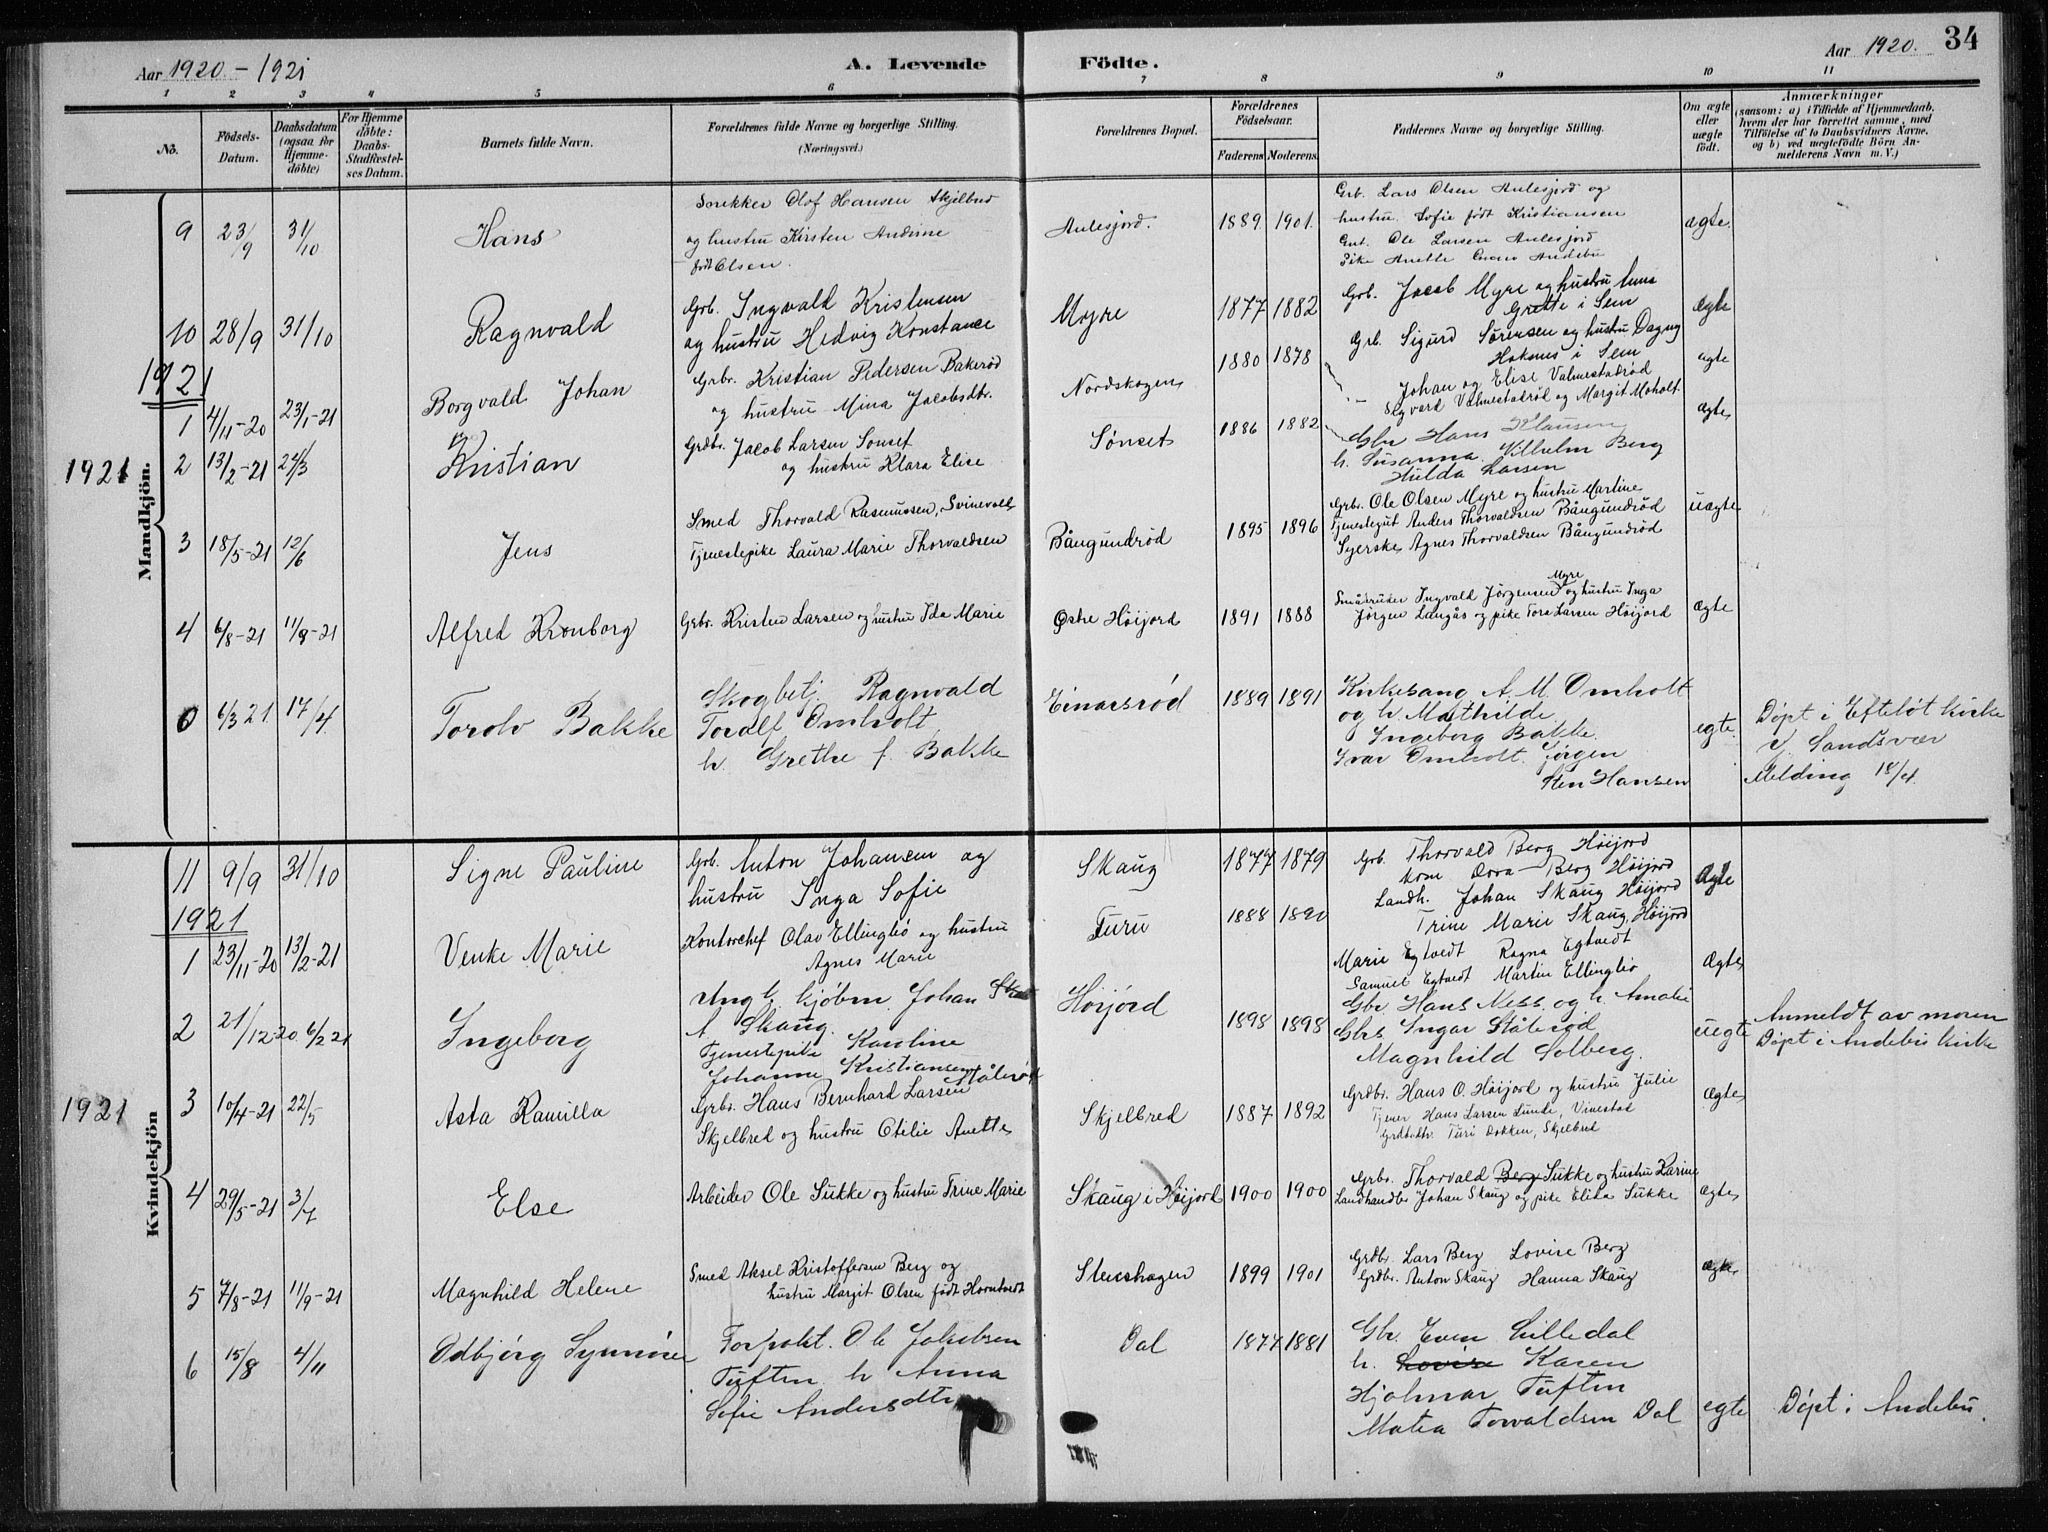 Aar 1920 - 1921
A. Levende
Födte.
Aar 1920.
34
1 2 3 4 5 6 7 8 9 10 11
No.
Födsels-Datum.
Daabsdatum (ogsaa for Hjemme-döbte)
For Hjemme döbte: Daabs-Stadfæstel-ses Datum.
Barnets fulde Navn.
Forældrenes fulde Navne og borgerlige Stilling.
(Næringsvei.)
Forældrenes Bopæl.
Forældrenes Födselsaar.
Faderens Moderens
Faddernes Navne og borgerlige Stilling.
Om ægte eller uægte födt.
Anmærkninger
(saasom: a) i Tilfælde af Hjemmedaab.
hvem der har forrettet samme, med
Tilföielse af to Daabsvidners Navne.
og b) ved uægtefödte Börn An-
melderens Navn m. V.)
Mandkjön.
9 23/9 31/10 Hans
Olof Hansen Skjelbred
og hustru Kirsten Andrine
født Olsen.
Aulesjord. 1889 1901.
Grb. Lars Olsen Aulesjord og
hustru Sofie født Kristiansen
Gut. Ole Larsen Aulesjord
Pike Anette Andebu
ægte.
10 28/9 31/10 Ragnvald
Grb. Ingvald Kristensen
og hustru Hedvig Konstance
Myre 1877 1882
Grb. Jacob Myre og hustru Anna
Grette i Sem
Grb. Sigurd Sørensen og hustru Dagny
i Sem
ægte
1921
1 4/11-20 23/1-21 Borgvald Johan
Grbr. Kristian Pedersen Bakerød
og hustru Mina Jacobsdtr.
Nordskogen 1880 1878
Johan og Elise Valmestadrød
Sigvard Valmestadrød og Margit Moholt
ægte
1921
2 13/2-21 24/3 Kristian
Grdbr. Jacob Larsen Sønset
og hustru Klara Elise
Sønset 1886 1882
Gbr Hans Klausen
h. Susanna. Vilhelm Berg
Hulda Larsen
ægte
3 18/5-21 12/6 Jens
Smed Thorvald Rasmussen, Svinevoll
Tjenestepike Laura Marie Thorvaldsen
Bångundrød 1895 1896
Grbr. Ole Olsen Myre og hustru Martine
Tjenestegut Anders Thorvaldsen Bångundrød
Syerske Agnes Thorvaldsen Bångundrød
uægte
4 6/8-21 11/9-21 Alfred Kronborg
Grbr. Kristen Larsen og hustru Ida Marie
Østre Høijord 1891 1888
Småbruker Ingvald Jørgensen Myre og hustru Inga
Jørgen Langås og pike Tora Larsen Høijord
ægte
0 6/3 21 17/4. Torolv Bakke
Skogbetj. Ragnvald
Toralf Omholt
h. Grethe f. Bakke
Einarsrød 1889 1891
Kirkesang. A. M. Omholt
og h. Mathilde
Ingeborg Bakke.
Ivar Omholt. Jørgen
Sten Hansen
egte.
Døpt i Efteløt kirke
i Sandsvær
Melding 18/4.
Kvindekjön
11 9/9 31/10 Signe Pauline
Grb. Anton Johansen og
hustru Inga Sofie
Skaug 1877 1879
Grb. Thorvald Berg Høijord
kone Dora Berg Høijord
Landh. Johan Skaug Høijord
Trine Marie Skaug, Høijord
ægte
1921
1 23/11-20 13/2-21 Venke Marie
Kontorchef Olav Ellingbø og hustru
Agnes Marie
Furu 1888 1890
Marie Egtvedt Ragna Egtvedt
Samuel Egtvedt Martin Ellingbø
ægte
2 21/12-20 6/2 21 Ingeborg
Ung k. kjøbm. Johan
A Skaug.
Tjenestepike Karoline
Johanne Kristiansen Stålerød
Høijord 1898 1898
Gbr Hans Ness og h. Amalie
Gbrs Ingar Stålerød
Magnhild Solberg.
uegte
Anmeldt av moren
Døpt i Andebu kirke
1921
3 10/4-21 22/5 Asta Kamilla
Grbr. Hans Bernhard Larsen
Skjelbred og hustru Otilie Anette
Skjelbred 1887 1892
Grdbr. Hans O. Høijord og hustru Julie
Tjener Hans Larsen Lunde, Vivestad
Grdbdtr. Turi Dokken, Skjelbred
ægte
4 29/5-21 3/7 Else
Arbeider Ole Sukke og hustru Trine Marie
Skaug i Høijord 1900 1900
Grbr. Thorvald Berg Sukke og hustru Karine
Landhandler Johan Skaug og pike Elida Sukke
ægte
5 7/8-21 11/9-21 Magnhild Helene
Smed Aksel Kristoffersen Berg og
hustru Margit Olsen født Horntvedt
Stenshagen 1899 1901
Grdbr. Lars Berg Lovise Berg
Grdbr. Anton Skaug Hanna Skaug
ægte
6 15/8 4/11 Odbjørg Synnøve
Forpakt. Ole Jakobsen
Tuften h Anna
Sofie Andersdtr
Dal 1877 1881
Gbr. Even Lilledal
h. Lovise Karen
Hjalmar Tuften
Matea Torvaldsen Dal
egte
Døpt i Andebu.